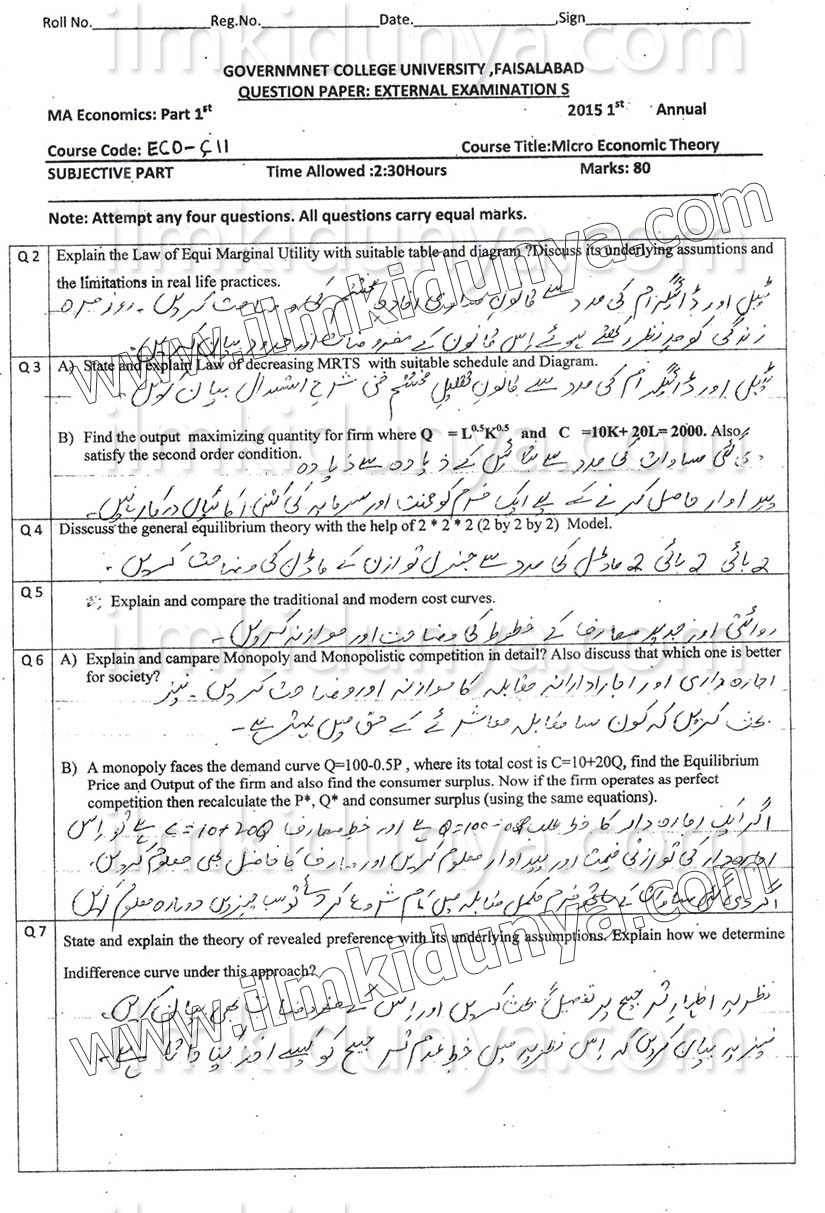 Roll No.____________Reg.No.________________Date.____________________,Sign____________________
GOVERNMNET COLLEGE UNIVERSITY ,FAISALABAD
QUESTION PAPER: EXTERNAL EXAMINATION S
MA Economics: Part 1st 2015 1st Annual
Course Code: ECO-511 Course Title:Micro Economic Theory
SUBJECTIVE PART Time Allowed :2:30Hours Marks: 80
Note: Attempt any four questions. All questions carry equal marks.
Q 2 Explain the Law of Equi Marginal Utility with suitable table and diagram ?Discuss its underlying assumtions and
the limitations in real life practices.
ٹیبل اور ڈائیگرام کی مدد سے قانون کی وضاحت کریں۔ روزمرہ
زندگی کو مدنظر رکھتے ہوئے اس قانون کے مفروضات اور حدود بیان کریں۔
Q 3 A) State and explain Law of decreasing MRTS with suitable schedule and Diagram.
ٹیبل اور ڈائیگرام کی مدد سے قانون تقلیل مختتم فنی شرح استبدال بیان کریں۔
B) Find the output maximizing quantity for firm where Q = L0.5K0.5 and C =10K+ 20L= 2000. Also
satisfy the second order condition.
دی گئی مساوات کی مدد سے کے زیادہ سے زیادہ
پیداوار حاصل کرنے کے لیے ایک فرم کو محنت اور سرمایہ کی کتنی اکائیاں درکار ہیں۔
Q 4 Disscuss the general equilibrium theory with the help of 2 * 2 * 2 (2 by 2 by 2) Model.
2 بائی 2 بائی 2 ماڈل کی مدد سے جنرل توازن کے ماڈل کی وضاحت کریں۔
Q 5 Explain and compare the traditional and modern cost curves.
روائتی اور جدید مصارف کے خطوط کی وضاحت اور موازنہ کریں۔
Q 6 A) Explain and campare Monopoly and Monopolistic competition in detail? Also discuss that which one is better
for society?
اجارہ داری اور اجارادارانہ مقابلہ کا موازنہ اور وضاحت کریں۔ نیز
بحث کریں کہ کون سا مقابلہ معاشرے کے حق میں بہتر ہے۔
B) A monopoly faces the demand curve Q=100-0.5P , where its total cost is C=10+20Q, find the Equilibrium
Price and Output of the firm and also find the consumer surplus. Now if the firm operates as perfect
competition then recalculate the P*, Q* and consumer surplus (using the same equations).
اگر ایک اجارہ دار کا خط طلب Q=100-0.5P ہے اور خط مصارف C=10+20Q ہے تو اس
اجارہ دار کی توازنی قیمت اور پیداوار معلوم کریں اور صارف کا فاضل بھی معلوم کریں۔
اگر دی گئی مساوات کے ساتھ فرم مکمل مقابلہ میں کام شروع کر دے تو سب چیزیں دوبارہ معلوم کریں
Q 7 State and explain the theory of revealed preference with its underlying assumptions. Explain how we determine
Indifference curve under this approach?
نظریہ اظہار ترجیح پر تفصیلاً بحث کریں اور اس کے مفروضات بھی بیان کریں۔
نیز یہ بیان کریں کہ اس نظریہ میں خط عدم ترجیح کو کیسے اخذ کیا جاتا ہے۔
ilmkidunya.com
www.ilmkidunya.com
www.ilmkidunya.com